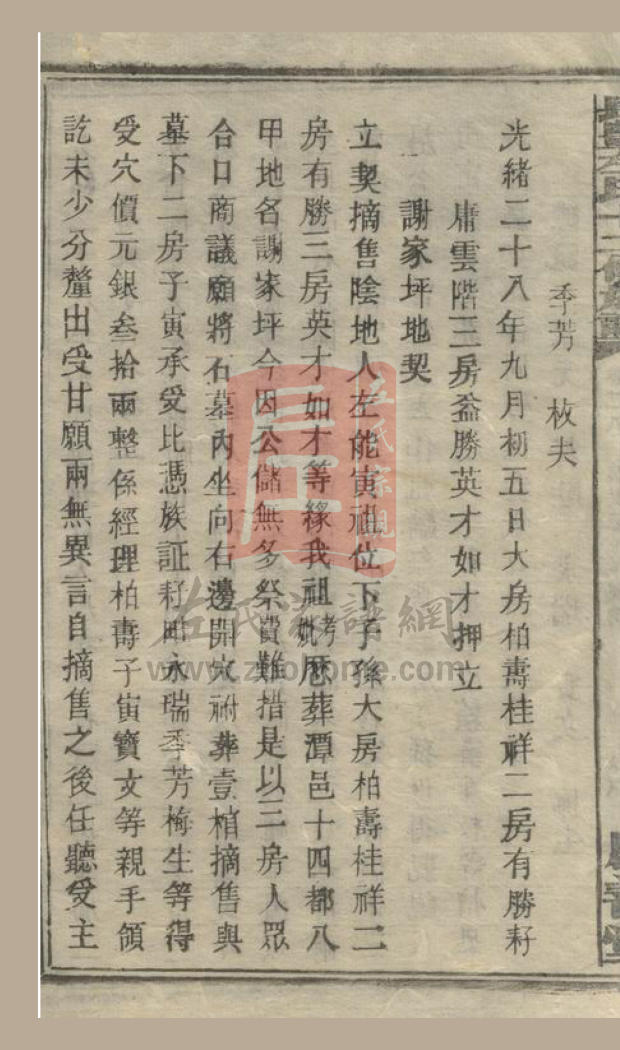 季芳 枚夫
光緒二十八年九月初五日大房柏壽桂祥二房有勝耔
庸雲階三房益勝英才如才押立
謝家坪地契
立契摘售陰地人左能寅祖位下子孫大房柏壽桂祥二
房有勝三房英才如才等緣我祖考妣厝葬潭邑十四都八
甲地名謝家坪今因公儲無多祭費難措是以三房人眾
合口商議願將右墓內坐向右邊開穴祔葬壹棺摘售與
墓下二房子寅承受比憑族証耔畇永瑞季芳梅生等得
受穴價元銀叁拾兩整係經理柏壽子寅寶文等親手領
訖未少分釐出受甘願兩無異言自摘售之後任聽受主
左氏
網
www.zuohome.com